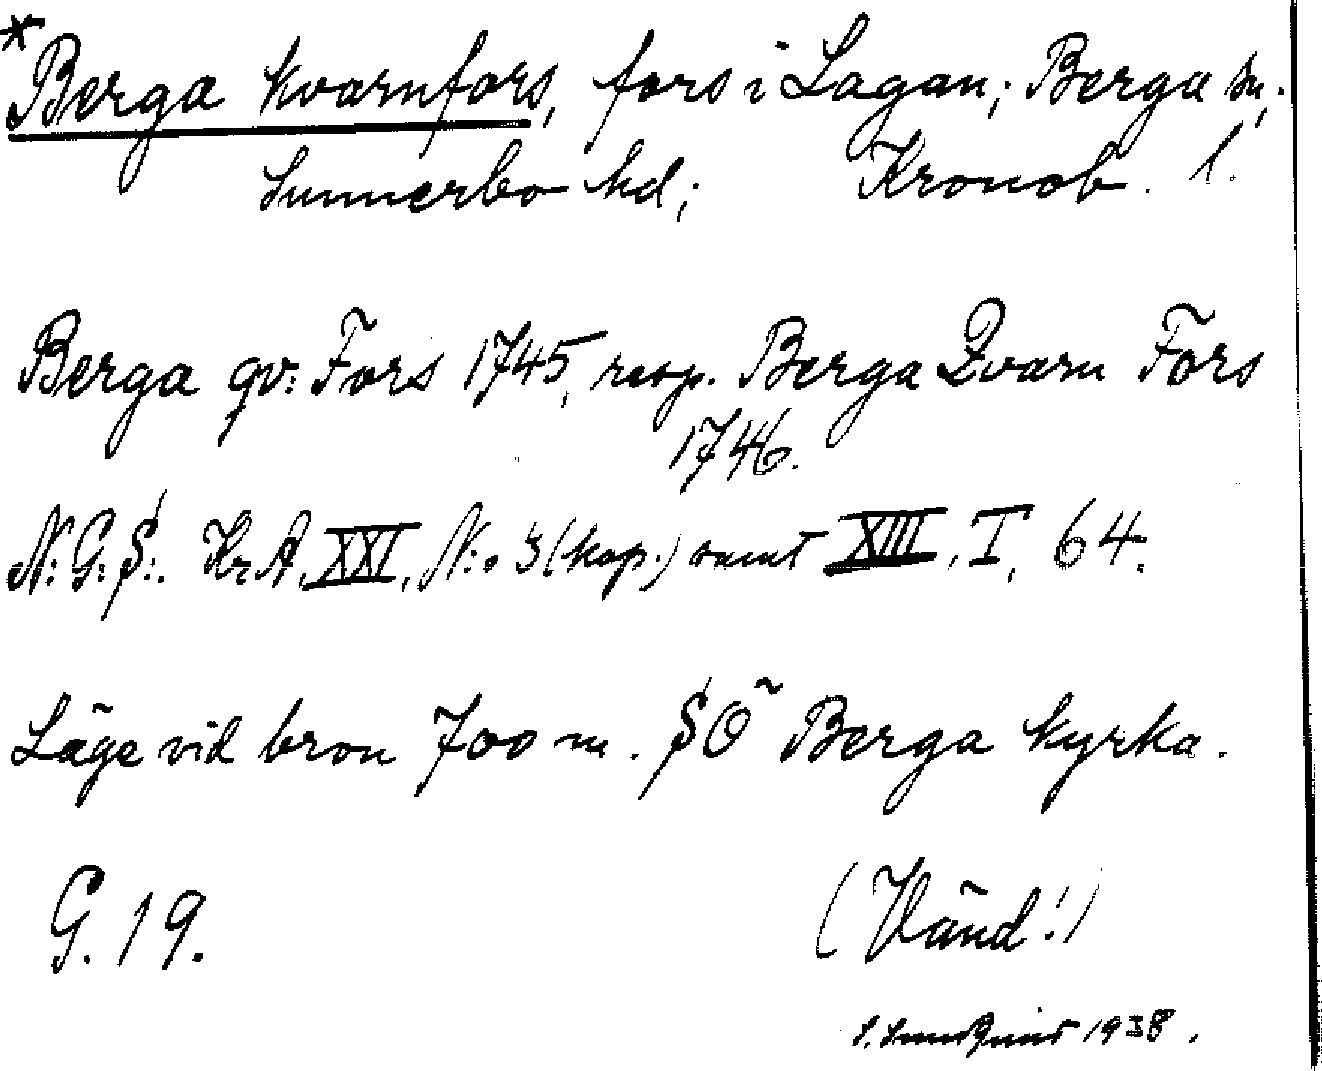 *Berga Kvarnfors, fors i Lagan; Berga sn;
Sunnerbo hd; Kronob. l.
Berga qv: Fors 1745, resp. Berga Qvarn Fors
1746.
N:G:S:. Kr.A. XXI, N:o 3 (kop.) samt XIII, I, 64.
Läge vid bron 700 m. SÖ Berga kyrka.
G. 19.
(Vänd!)
S. Sundquist 1938.